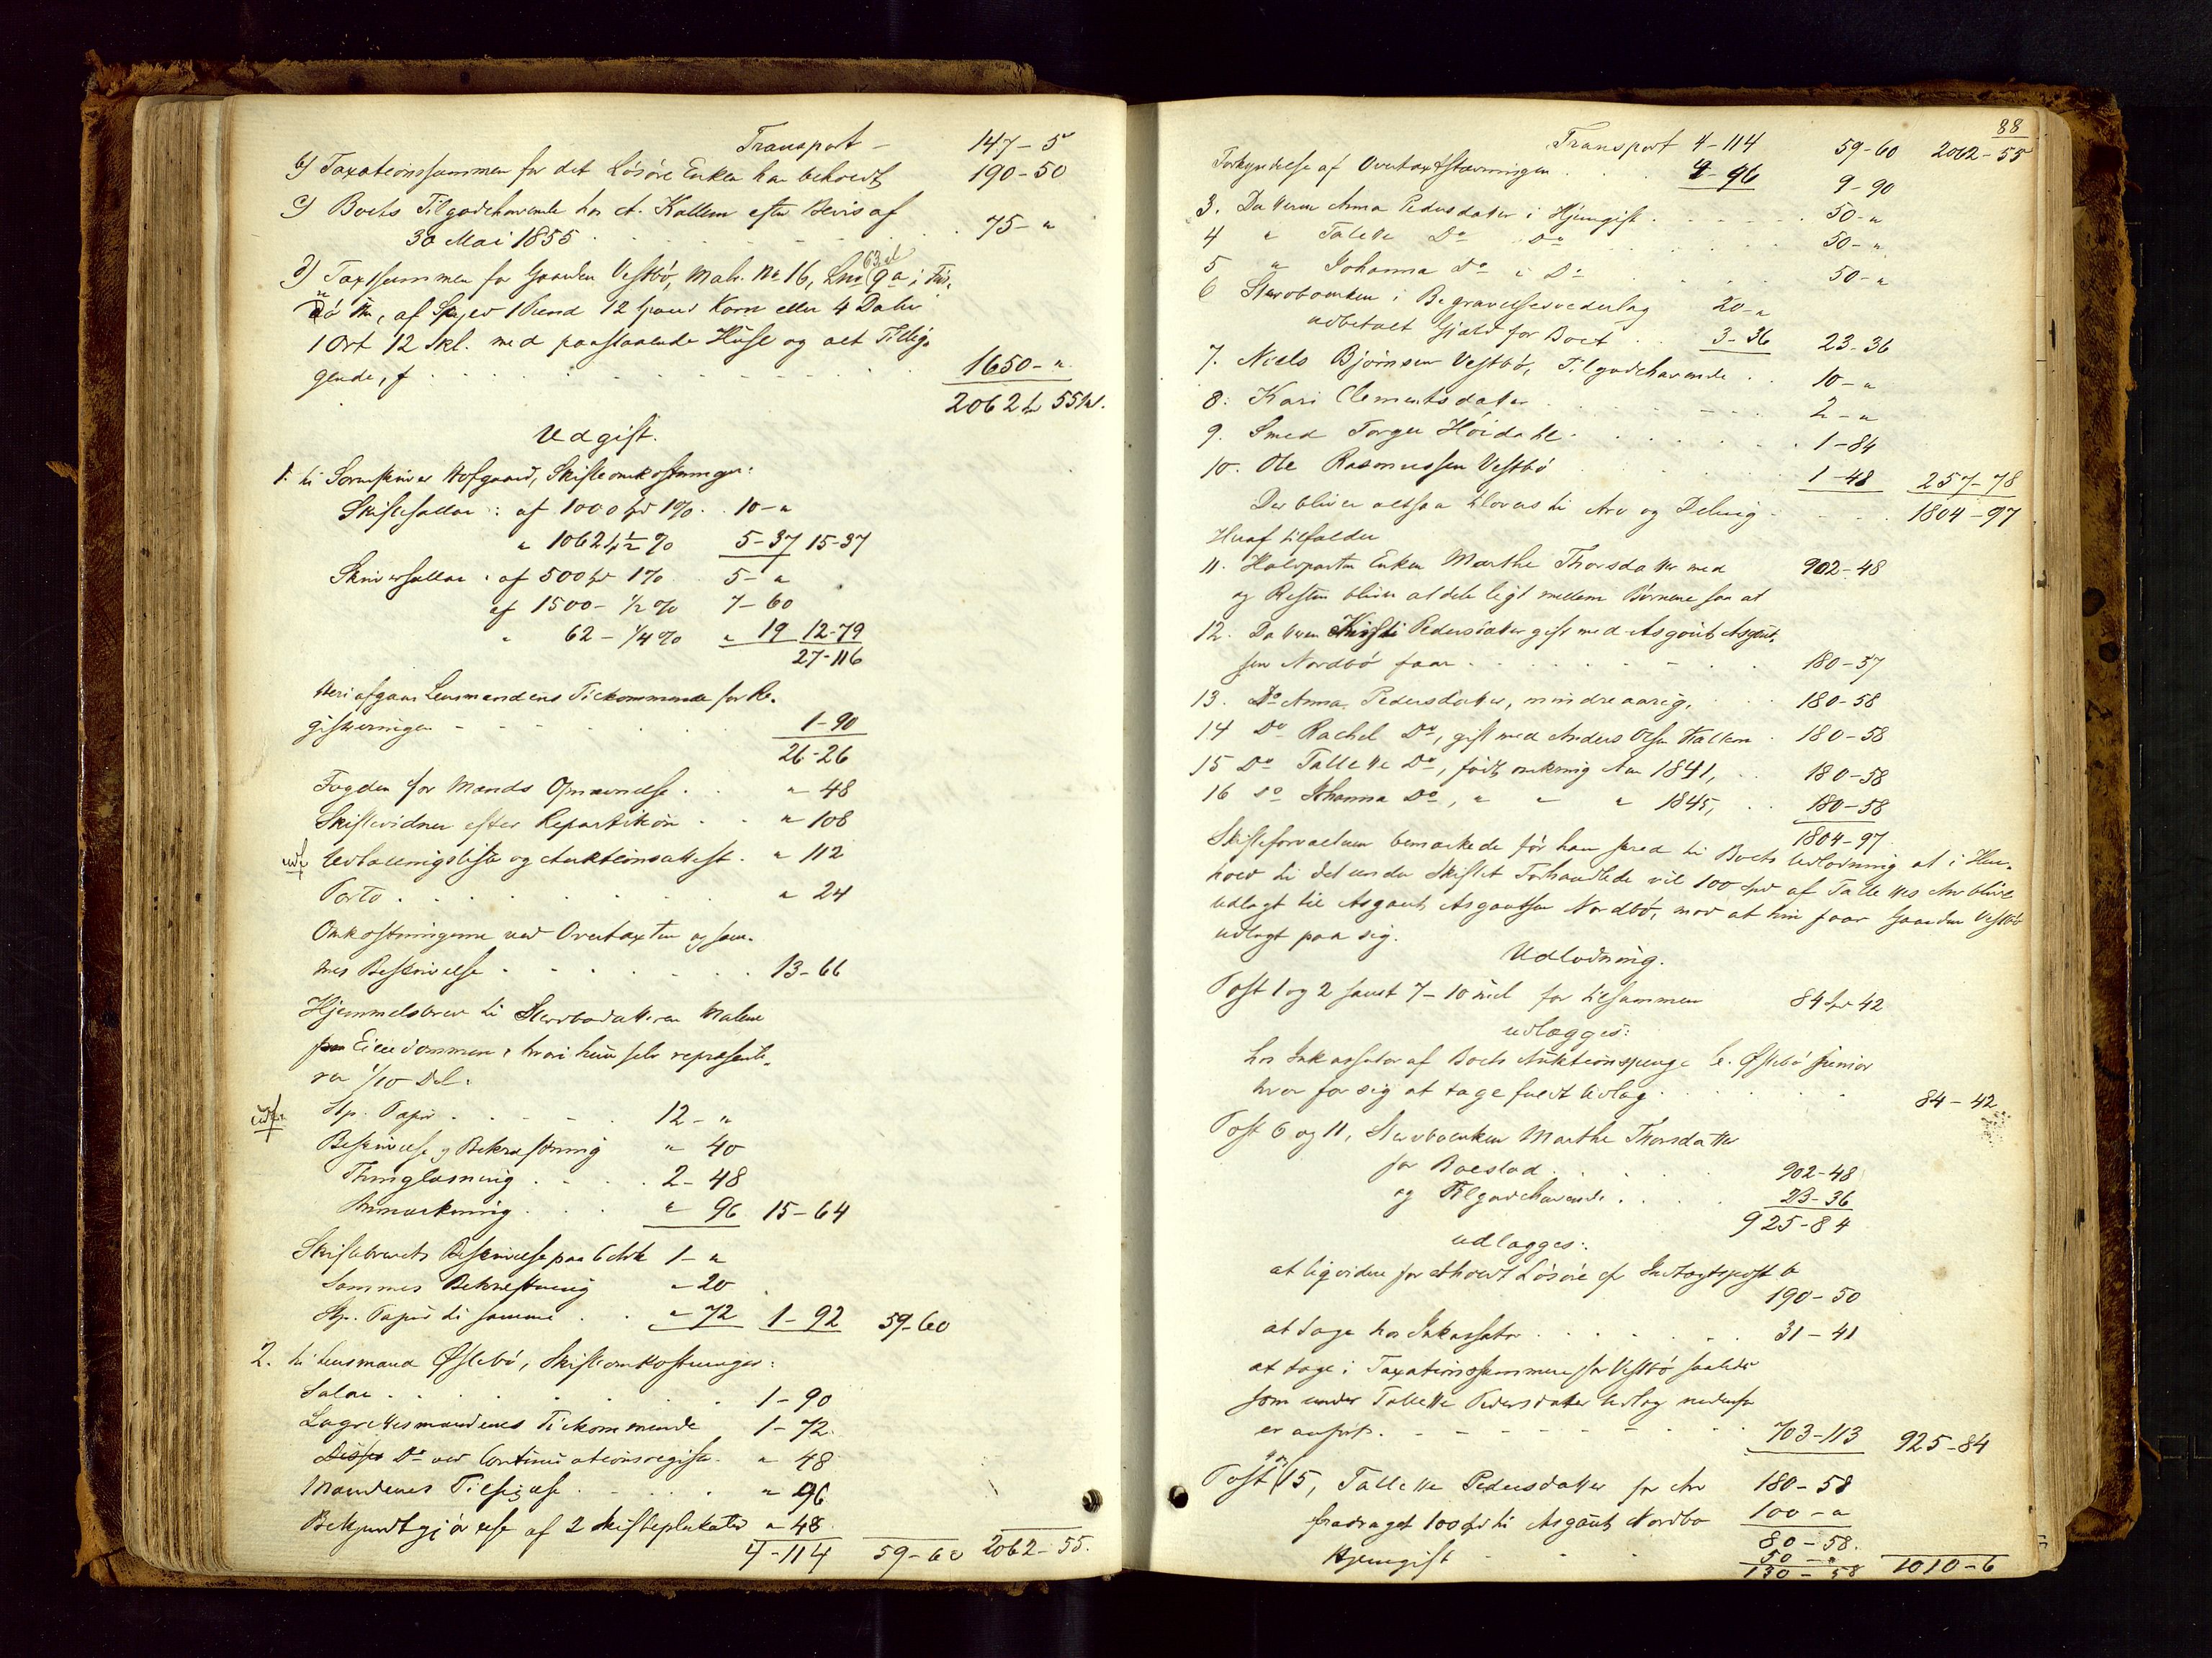 Transport - 147-5
b) Taxationssummen for det Løsøre Enken har beholdt 190-50
c) Boets Tilgodehavende hos A. Kallem efter Bevis af
30 Mai 1855 . . . . . 75-"
d) Taxtsummen for Gaarden Vestbø, Matr. No 16, Lno 63 d
9 a, i
af Skyld 1 Pund 12 Spand Korn eller 4 Daler
1 Ort 12 Skl. med paastaaende Huse og alt Tillig-
gende, f . . . . . 1650-"
2062 Spd 55 sk.
Udgift.
1. til Sorenskriver Hofgaard, Skifteomkostninger:
Skiftesallar: af 1000 Spd 1% . . 10-"
" 1062 Spd ½% 5-37 15-37
Skriversallar: af 500 Spd 1% 5-"
af 1500- 1/2% 7-60
" 62- 1/4% " 19 12-79
27-116
Heri afgaar Lensmandens Tilkommende for Re-
gistreringen - - - 1-90
26-26
Fogden for Mænds Opnævnelse . . " 48
Skiftevidner efter Repartition . . " 108
Udlodningsliste og Auktionsattest . " 112
Porto . . . . . " 24
Omkostningerne ved Overtaxten og sam-
mes Beskrivelse . . . . . 13-66
Hjemmelsbrev til Stervbodatteren Malene
paa Eiendommen, hvori hun selv repræsente-
rer 1/10 Del.
Stp. Papir . . . . 12-"
Beskrivelse og Bekræftning " 40
Thinglæsning . . . 2-48
Anmærkning . . . " 96 15-64
Skiftebrevets Beskrivelse paa 6 Ark 1-"
Sammes Bekræftning " 20
Stp. Papir til samme . . " 72 1-92 59-60
2. til Lensmand Østebø, Skifteomkostninger:
Salær . . . . . 1-90
Lagrettesmændenes Tilkommende 1-72
Do ved Continuationsregistr. " 48
Mændenes Tilsigelse . . . . " 96
Bekjendtgjørelse af 2 Skifteplakater " 48
4-114 59-60 2062-55.
88
Transport 4-114 59-60 2062-55
Forkyndelse af Overtaxtstævningen . . . 4-96 9-90
3. Datteren Anna Pedersdatter i Hjemgift . . . . 50-"
4 " Talette Do Do . . . . 50-"
5 " Johanna Do i Do . . . . 50-"
6 Stervboenken i Begravelsesvederlag 20-"
udbetalt Gjæld for Boet . . 3-36 23-36
7. Niels Bjørnsen Vestbø, Tilgodehavende . . 10-"
8. Kari Clementsdatter . . . . 2-"
9. Smed Torger Høidahl . . . . 1-84
10. Ole Rasmussen Vestbø . . . . 1-48 257-78
Der bliver altsaa tilovers til Arv og Deling . . . . 1804-97
Heraf tilfalder
11. Halvparten Enken Marthe Thorsdatter med 902-48
og Resten bliver at dele ligt mellem Børnene saa at
12. Datteren Kristi Pedersdatter gift med Asgaut Asgaut-
sen Nordbø faar . . . . . 180-57
13. Do Anna Pedersdatter, mindreaarig, . . 180-58
14 Do Rachel Do, gift med Anders Olsen Kallem . 180-58
15 Do Tallette Do, født omkring Aar 1841, . . 180-58
16 Do Johanna Do, " " " 1845, . . 180-58
1804-97.
Skifteforvalteren bemærkede før han skred til Boets Udlodning at i Hen-
hold til det under Skiftet Forhandlede vil 100 Spd af Tallettes Arv blive
udlagt til Asgaut Asgautsen Nordbø, mod at hun faar Gaarden Vestbø
udlagt paa sig.
Udlodning.
Post 1 og 2 samt 7-10 incl for tilsammen 84 Spd 42
udlægges:
hos Inkassator af Boets Auktionspenge E. Østebø junior
hver for sig at tage fuldt Udlæg . . . . . 84-42
Post 6 og 11, Stervboenken Marthe Thorsdatter
for Boeslod . . . . 902-48
og Tilgodehavende . . . . 23-36
925-84
udlægges:
at liqvidere for Løsøre cfr Indtægtspost b
190-50
at tage hos Inkassator . . . . . 31-41
at tage i Taxationssummen for Vestbø saaledes
som under Tallette Pedersdatters Udlæg nedenfor
er anført . - - - - 703-113 925-84
Post 15, Tallette Pedersdatter for Arv 180-58
fradraget 100 Spd til Asgaut Nordbø 100-"
80-58.
Hjemgift - - 50-"
130-58 1010-6